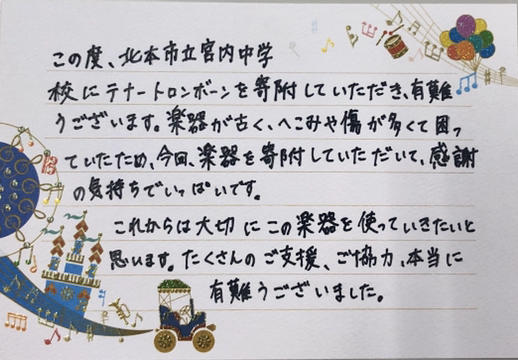 この度、北本市立宮内中学
校にテナートロンボーンを寄附していただき、有難
うございます。楽器が古く、へこみや傷が多くて困っ
ていたため、今回、楽器を寄附していただいて、感謝
の気持ちでいっぱいです。
これからは大切にこの楽器を使っていきたいと
思います。たくさんのご支援、ご協力、本当に
有難うございました。